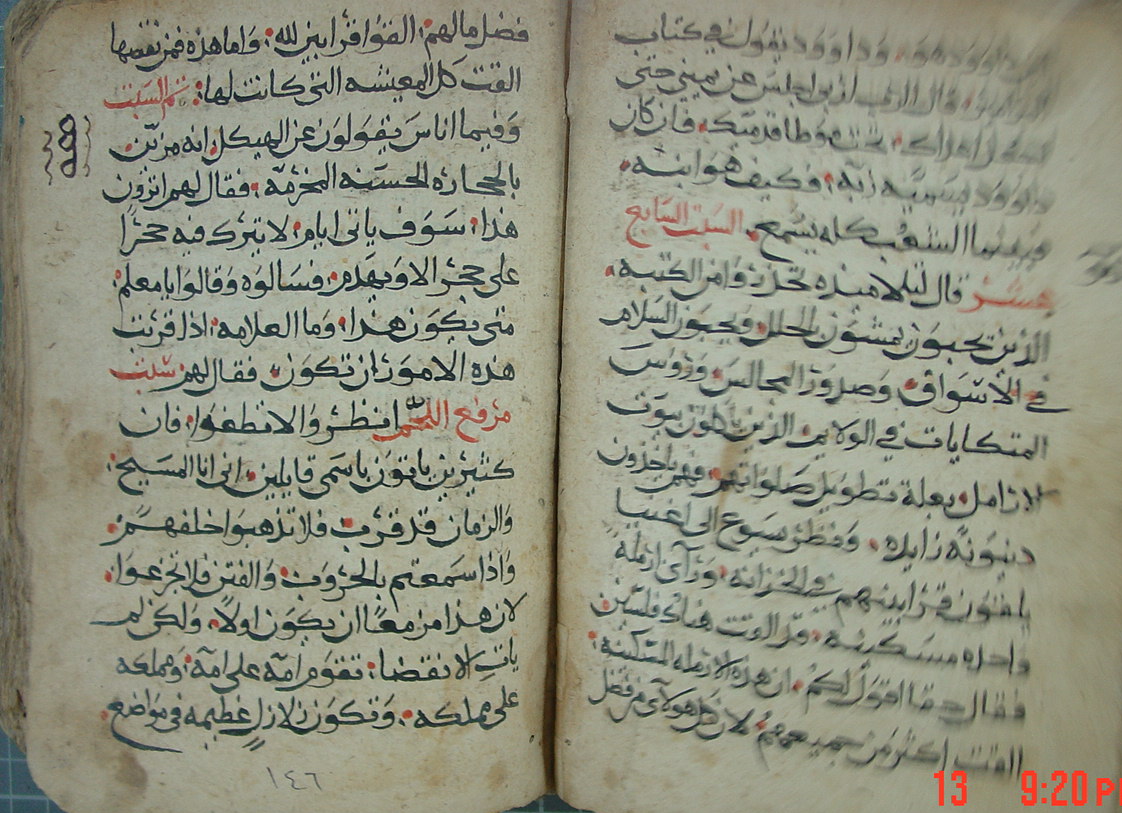 داوود هو وداوود يقول في كتاب
قال الرب لربي اجلس عن يميني حتى
اعداك تحت موطا قدميك فان كان
داوود يسميه ربه وكيف هو ابنه
وبينما الشعب كله يسمع السبت السابع
عشر قال لتلاميذه تحذروا من الكتبة
الذين تحبون يمشون بالحلل ويحبون السلام
في الاسواق وصدور المجالس وروس
المتكايات في الولايم الذين ياكلون بيوت
الارامل بعلة تطويل صلواتهم فهم ياخذون
دينونة زايده ونظر يسوع الى اغنيا
يلقون قرابينهم في الخزانه وراى ارملة
واحده مسكينه قد القت هناك فلسين
فقال حقا اقول لكم ان هذه الارمله المسكينه
القت اكثر من جميعهم لان كل هولاى من فضل
فضل مالهم القوا قرابين لله واما هذه فمن نقصها
القت كل المعيشه التي كانت لها تم السبت
وفيما اناس يقولون عن الهيكل انه مزين
بالحجاره الحسنه المخرمه فقال لهم اترون
هذا سوف ياتي ايام لا يترك فيه حجرا
على حجر الا ويهدم فسالوه وقالوا يا معلم
متى يكون هذا وما العلامه اذا قربت
هذه الامور ان تكون فقال لهم سبت
مرفع اللحم انظروا لا تطغوا فان
كثيرين ياتون باسمي قايلين اني انا المسيح
والزمان قد قرب فلا تذهبوا خلفهم
واذا سمعتم بالحروب والفتن فلا تجزعوا
لان هذا مزمعا ان يكون اولا ولكن لم
يات الانقضا تقوم امه على امه ومملكه
على مملكه وتكون زلازل عظيمه في مواضع
١٤٦
13 9:20 P